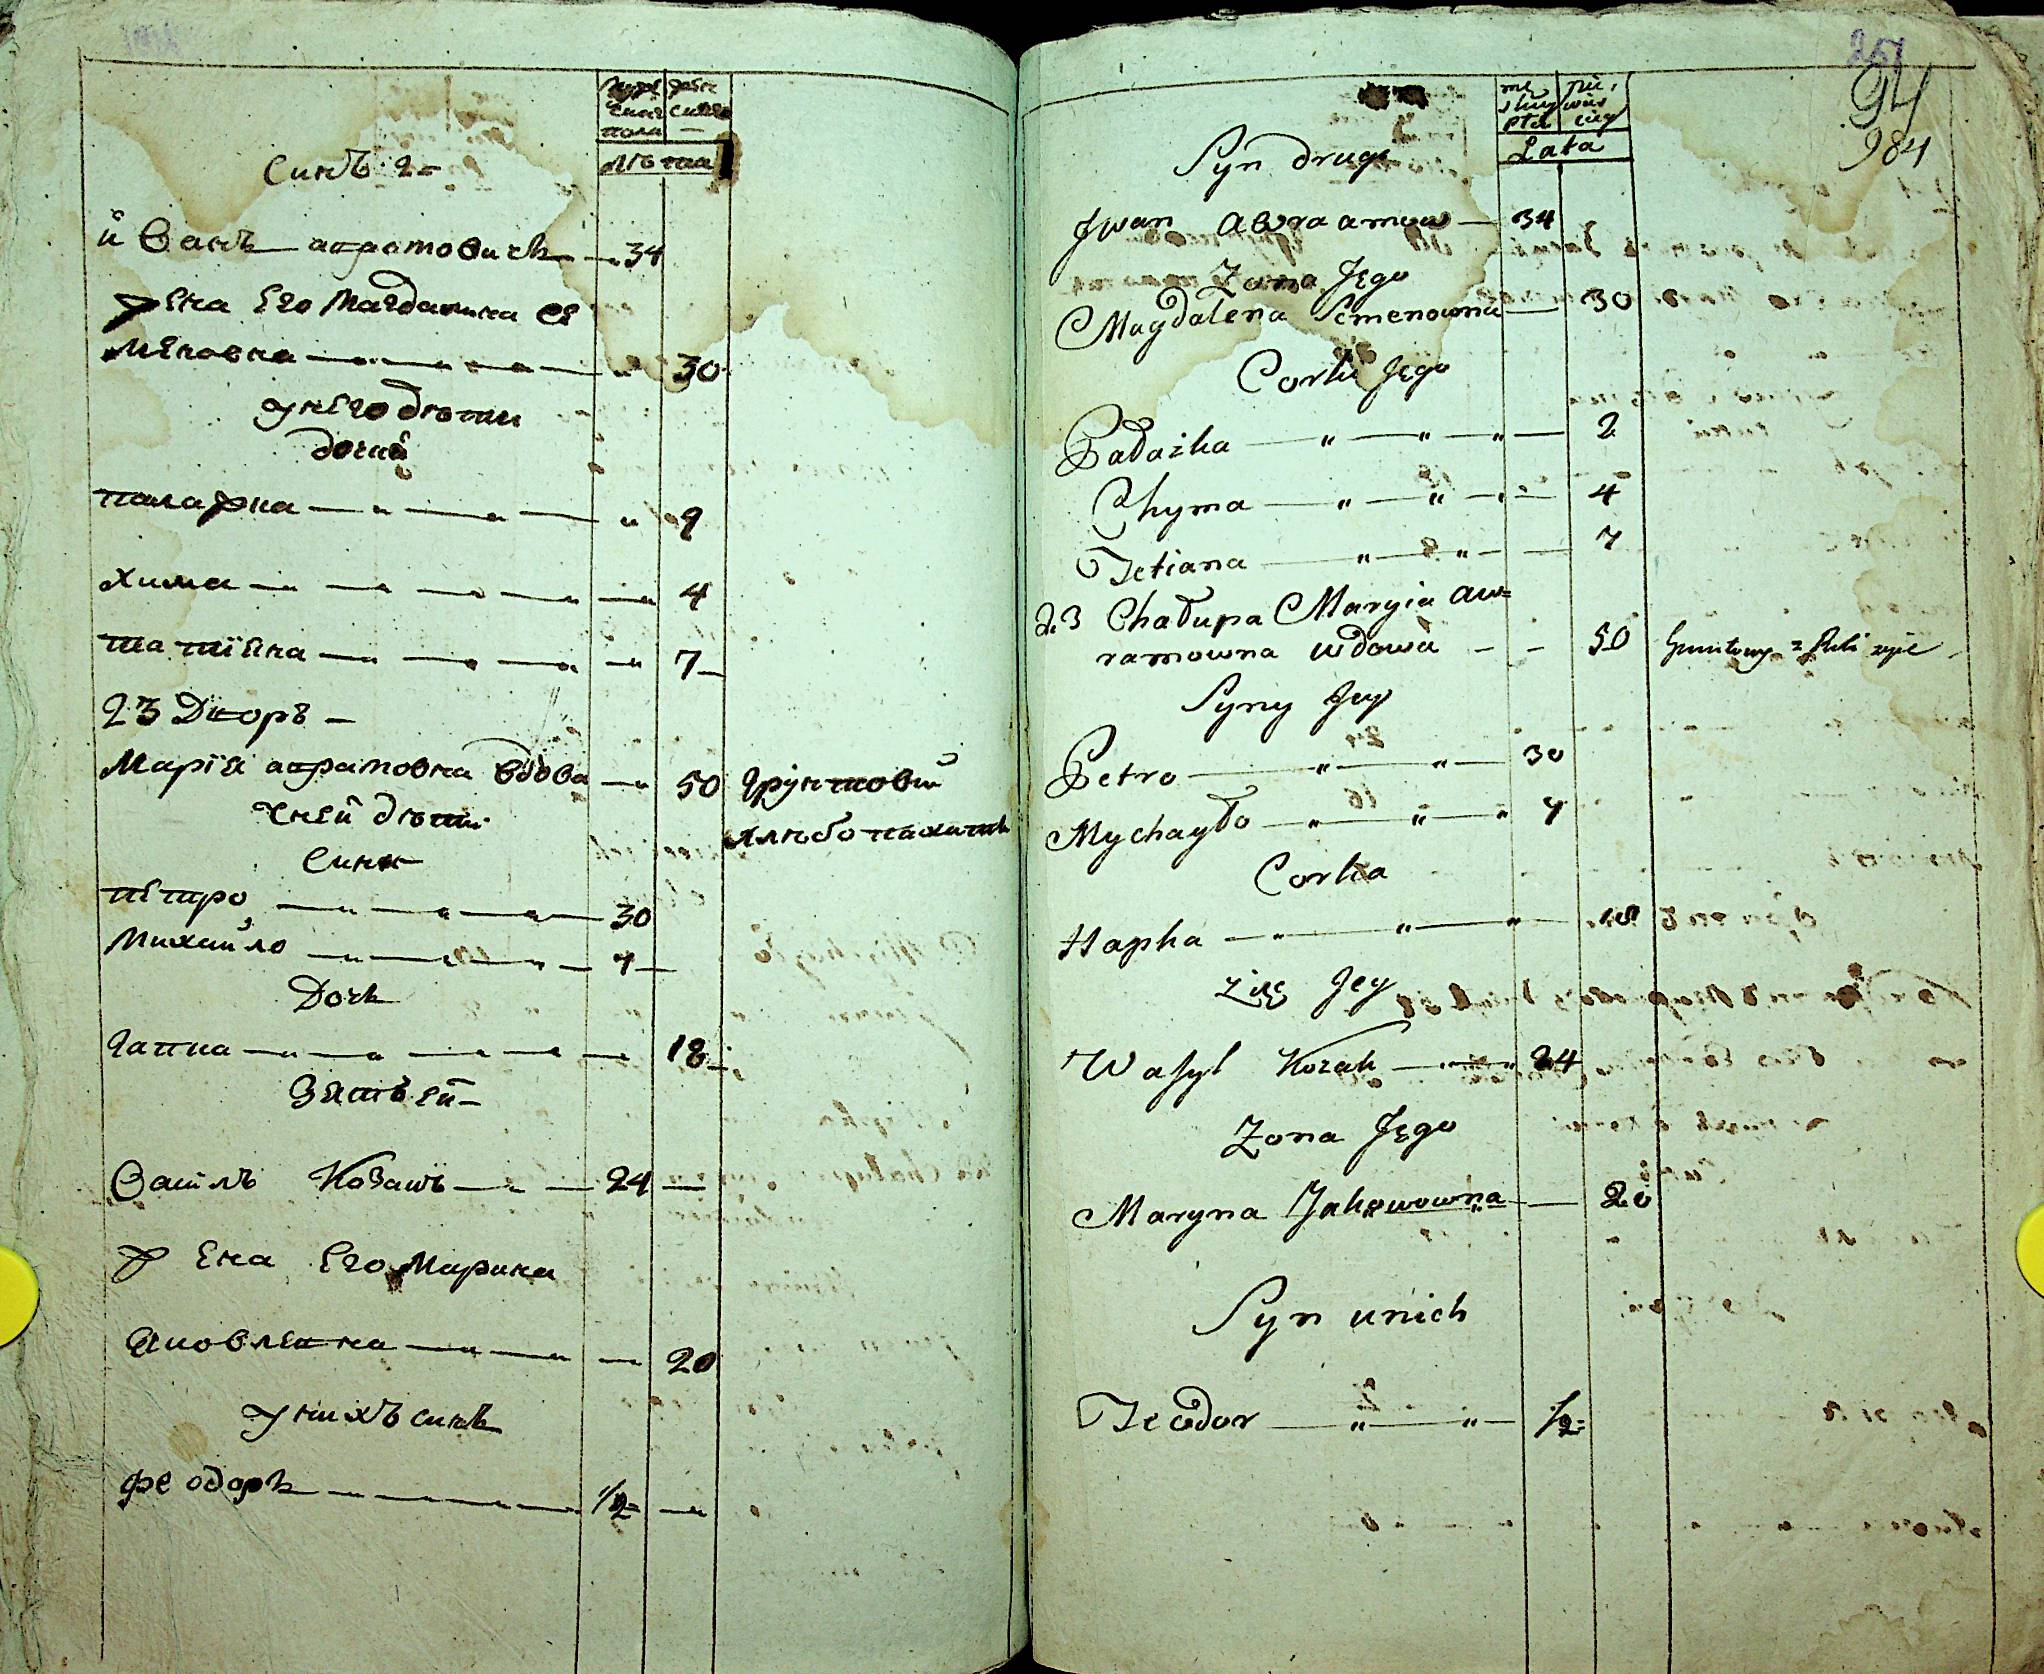 Синъ 2-
Лѣта
иванъ аврамовичъ 34
жена Его Магдалина Се
меновна 30
у нЕго дѣти
дочки
палажка 9
Хима 4
татіяна 7
23 Дворъ
Марїя аврамовна вдова 50 Грунтовий
у нЕй дѣти хлѣбо пахатъ
Сини
пЕтро 30
Михайло 7
Дочь
Гапка 18
Зять Ей
Василъ Козакъ 24
жЕна Его Марина
Яковлевна 20
у нихъ синъ
феодоръ 1/2
94
984
Lata
Syn drugi
Jwan Awraamow 34
Zona Jego
Magdalena Semenowna 30
Corki Jego
Pałażka 2
Chyma 4
Tetiana 7
23 Chałupa Maryia Aw=
ramowna wdowa 50 Gruntowy z Roli żyie
Syny Jey
Petro 30
Mychayło 7
Corka
Hapka 18
Zięć Jey
Wasyl Kozak 24
Zona Jego
Maryna Jakowowna 20
Syn unich
Teodor 1/2